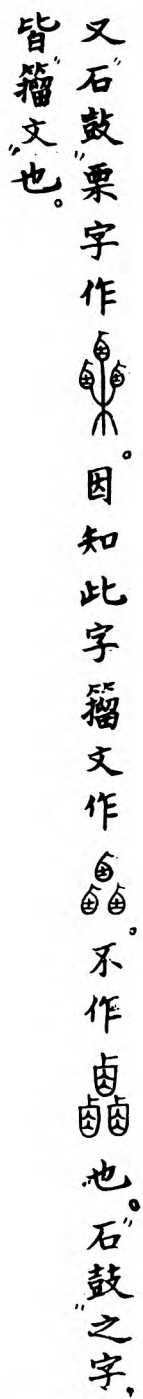 又"石鼓"栗字作。因知此字籀文作。不作也。"石鼓"之字，
皆"籀文"也。